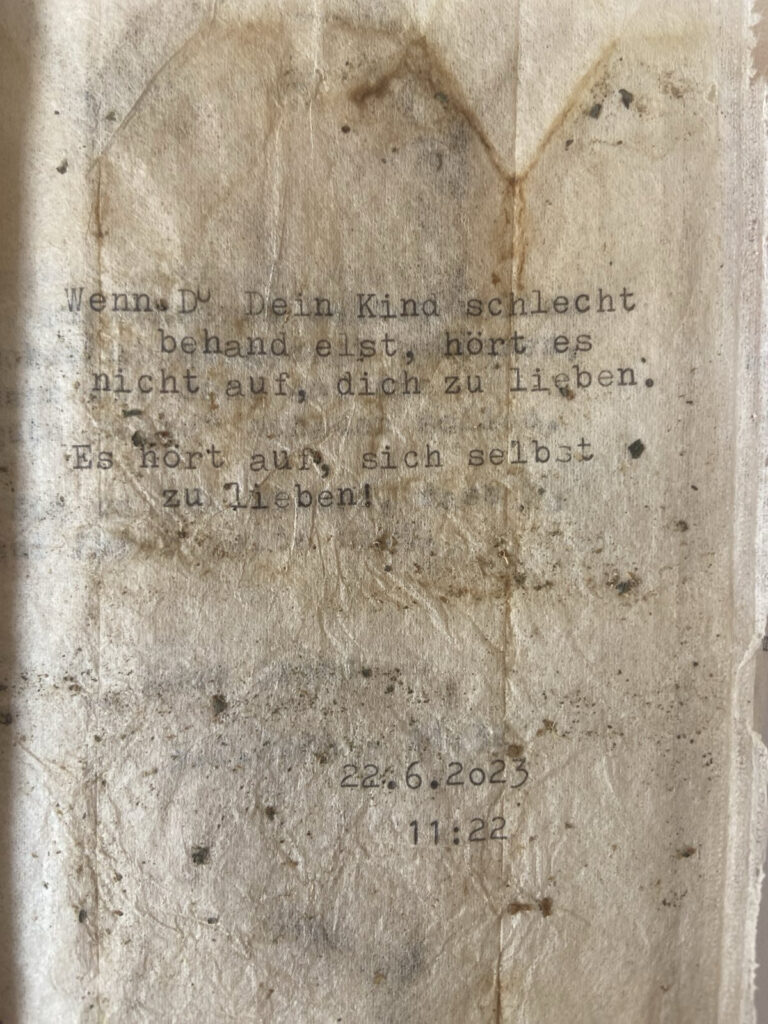 Wenn Du Dein Kind schlecht
behand elst, hört es
nicht auf, dich zu lieben.
Es hört auf, sich selbst
zu lieben!
22.6.2023
11:22